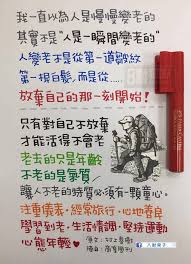 我一直以為人是慢慢變老的
其實不是"人是一瞬間變老的"
人變老不是從第一道皺紋
第一根白髮,而是從……
放棄自己的那一刻開始!
只有對自己不放棄
才能活得不會老
老去的只是年齡
不老的是氣質
讓人不老的特質必須有一顆童心。
注重儀表,經常旅行,心地善良
學習到老,生活情調,堅持運動
心態年輕
原文:村上春樹